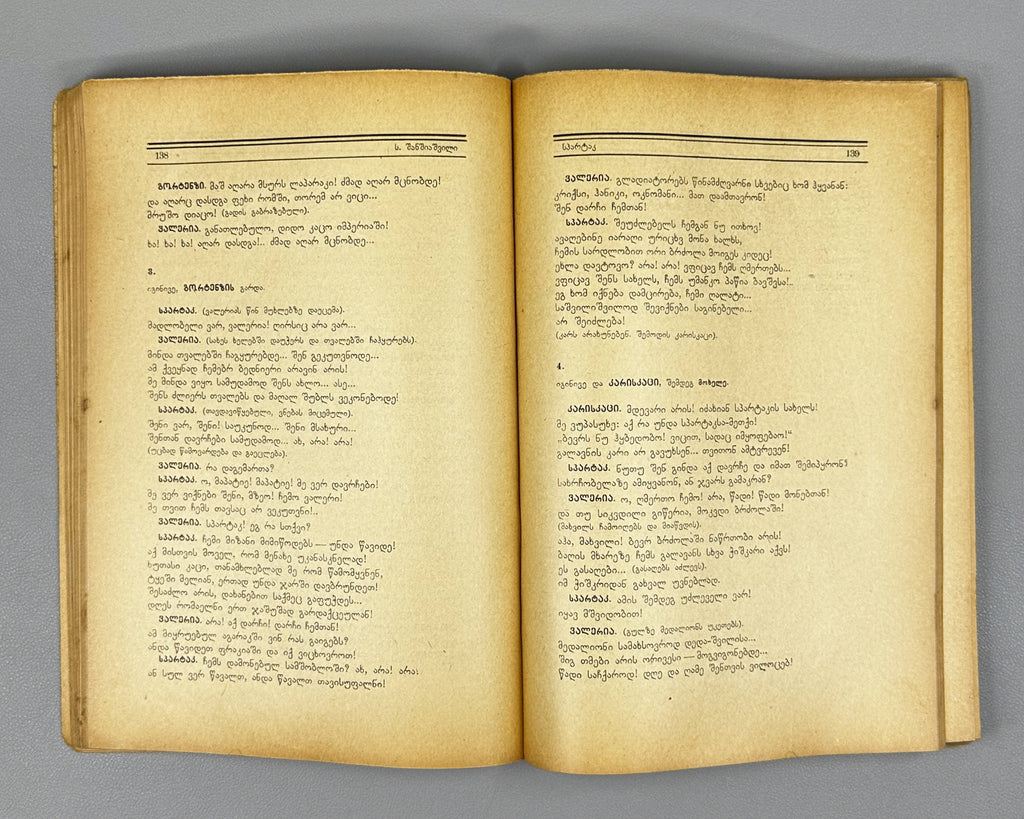 138
ს. შანშიაშვილი
გორტენზი. მაშ აღარა მსურს ლაპარაკი! ძმად აღარ მცნობდე!
და აღარც დასდგა ფეხი რომში, თორემ არ ვიცი...
მრუშო დიაცო! (გადის გაბრაზებული).
ვალერია. განათლებულო, დიდო კაცო იმპერიაში!
ხა! ხა! ხა! აღარ დასდგა!.. ძმად აღარ მცნობდე...
3.
იგინივე, გორტენზის გარდა.
სპარტაკ. (ვალერიას წინ მუხლებზე დაეცემა).
მადლობელი ვარ, ვალერია! ღირსიც არა ვარ...
ვალერია. (სახეს ხელებში დაუჭერს და თვალებში ჩაჰყურებს).
მინდა თვალებში ჩაგყურებდე... შენ გეკუთვნოდე...
ამ ქვეყნად ჩემებრ ბედნიერი არავინ არის!
მე მინდა ვიყო სამუდამოდ შენს ახლო... ასე...
შენს ძლიერს თვალებს და მაღალ შუბლს ვეკონებოდე!
სპარტაკ. (თავდავიწყებული, ვნებას მიცემული).
შენი ვარ, შენი! საუკუნოდ... შენი მსახური...
შენთან დავრჩები სამუდამოდ... ახ, არა! არა!
(უცბად წამოვარდება და გაეცლება).
ვალერია. რა დაგემართა?
სპარტაკ. ო, მაპატიე! მაპატიე! მე ვერ დავრჩები!
მე ვერ ვიქნები შენი, მზეო! ჩემო ვალერი!
მე თვით ჩემს თავსაც არ ვეკუთვნი!..
ვალერია. სპარტაკ! ეგ რა სთქვი?
სპარტაკ. ჩემი მიზანი მიმიწოდებს — უნდა წავიდე!
აქ მისთვის მოველ, რომ მენახე უკანასკნელად!
ხუთასი კაცი, თანამხლებლად მე რომ წამომყვნენ,
ტყეში მელიან, ერთად უნდა ჯარში დაებრუნდეთ!
შესაძლო არის, დახანებით საქმეც გაფუჭდეს...
დღეს რომაელნი ერთ ჯაშუშად გარდაქცეულან!
ვალერია. არა! აქ დარჩი! დარჩი ჩემთან!
ამ მიყრუებულ აგარაკში ვინ რას გაიგებს?
ანდა წავიდეთ ფრაკიაში და იქ ვიცხოვროთ!
სპარტაკ. ჩემს დამონებულ სამშობლოში? ახ, არა! არა!
ან სულ ვერ წავალთ, ანდა წავალთ თავისუფალნი!
სპარტაკ
139
ვალერია. გლადიატორებს წინამძღვარნი სხვებიც ხომ ჰყვანან:
კრიქსი, ჰანიკი, ოკნომანი... მათ დაამთავრონ!
შენ დარჩი ჩემთან!
სპარტაკ. შეუძლებელს ჩემგან ნუ ითხოვ!
ავაღებინე იარაღი ურიცხვ მონა ხალხს,
ჩემის სარდლობით ორი ბრძოლა მოიგეს კიდეც!
ეხლა დავტოვო? არა! არა! ვფიცავ ჩემს ღმერთებს...
ვფიცავ შენს სახელს, ჩემს უმანკო პაწია ბავშვსა!..
ეგ ხომ იქნება დამცირება, ჩემი ღალატი...
საშვილიშვილოდ შევიქნები საგინებელი...
არ შეიძლება!
(კარს არახუნებენ. შემოდის კარისკაცი).
4.
იგინივე და კარისკაცი, შემდეგ მოხელე.
კარისკაცი. მდევარი არის! იძახიან სპარტაკის სახელს!
მე ვუპასუხე: აქ რა უნდა სპარტაკსა-მეთქი!
„ბევრს ნუ ჰყბედობო! ვიცით, სადაც იმყოფებაო!“
გალავნის კარი არ გავუხსენ... თვითონ ამტვრევენ!
სპარტაკ. ნუთუ შენ გინდა აქ დავრჩე და იმათ შემიპყრონ?
სახრჩობელაზე ამიყვანონ, ან ჯვარს გამაკრან?
ვალერია. ო, ღმერთო ჩემო! არა, წადი! წადი მონებთან!
და თუ სიკვდილი გიწერია, მოკვდი ბრძოლაში!
(მახვილს ჩამოიღებს და მიაწვდის).
აჰა, მახვილი! ბევრ ბრძოლაში ნაწრთობი არის!
ბაღის მხარეზე ჩემს გალავანს სხვა ჭიშკარი აქვს!
ეს გასაღები... (გასაღებს აძლევს).
იმ ჭიშკრიდან გახვალ უვნებლად.
სპარტაკ. ამის შემდეგ უძლეველი ვარ!
იყავ მშვიდობით!
ვალერია. (გულზე მედალიონს უკეთებს).
მედალიონი სამახსოვროდ დედა-შვილისა...
შიგ თმები არის ორივესი — მოგვიგონებდე...
წადი საჩქაროდ! დღე და ღამე შენთვის ვილოცებ!